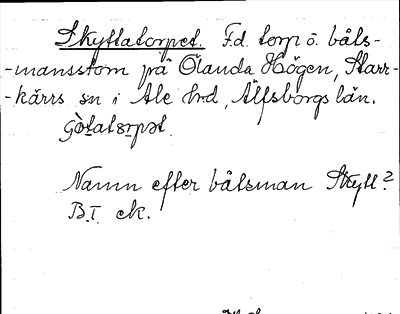 Skyttatorpet. F.d. torp o. båts-
-mansstom på Ölanda Högen, Starr-
-kärrs sn i Ale hrd, Älfsborgs län.
Namn efter båtsman Skytt?
B.T. ek.